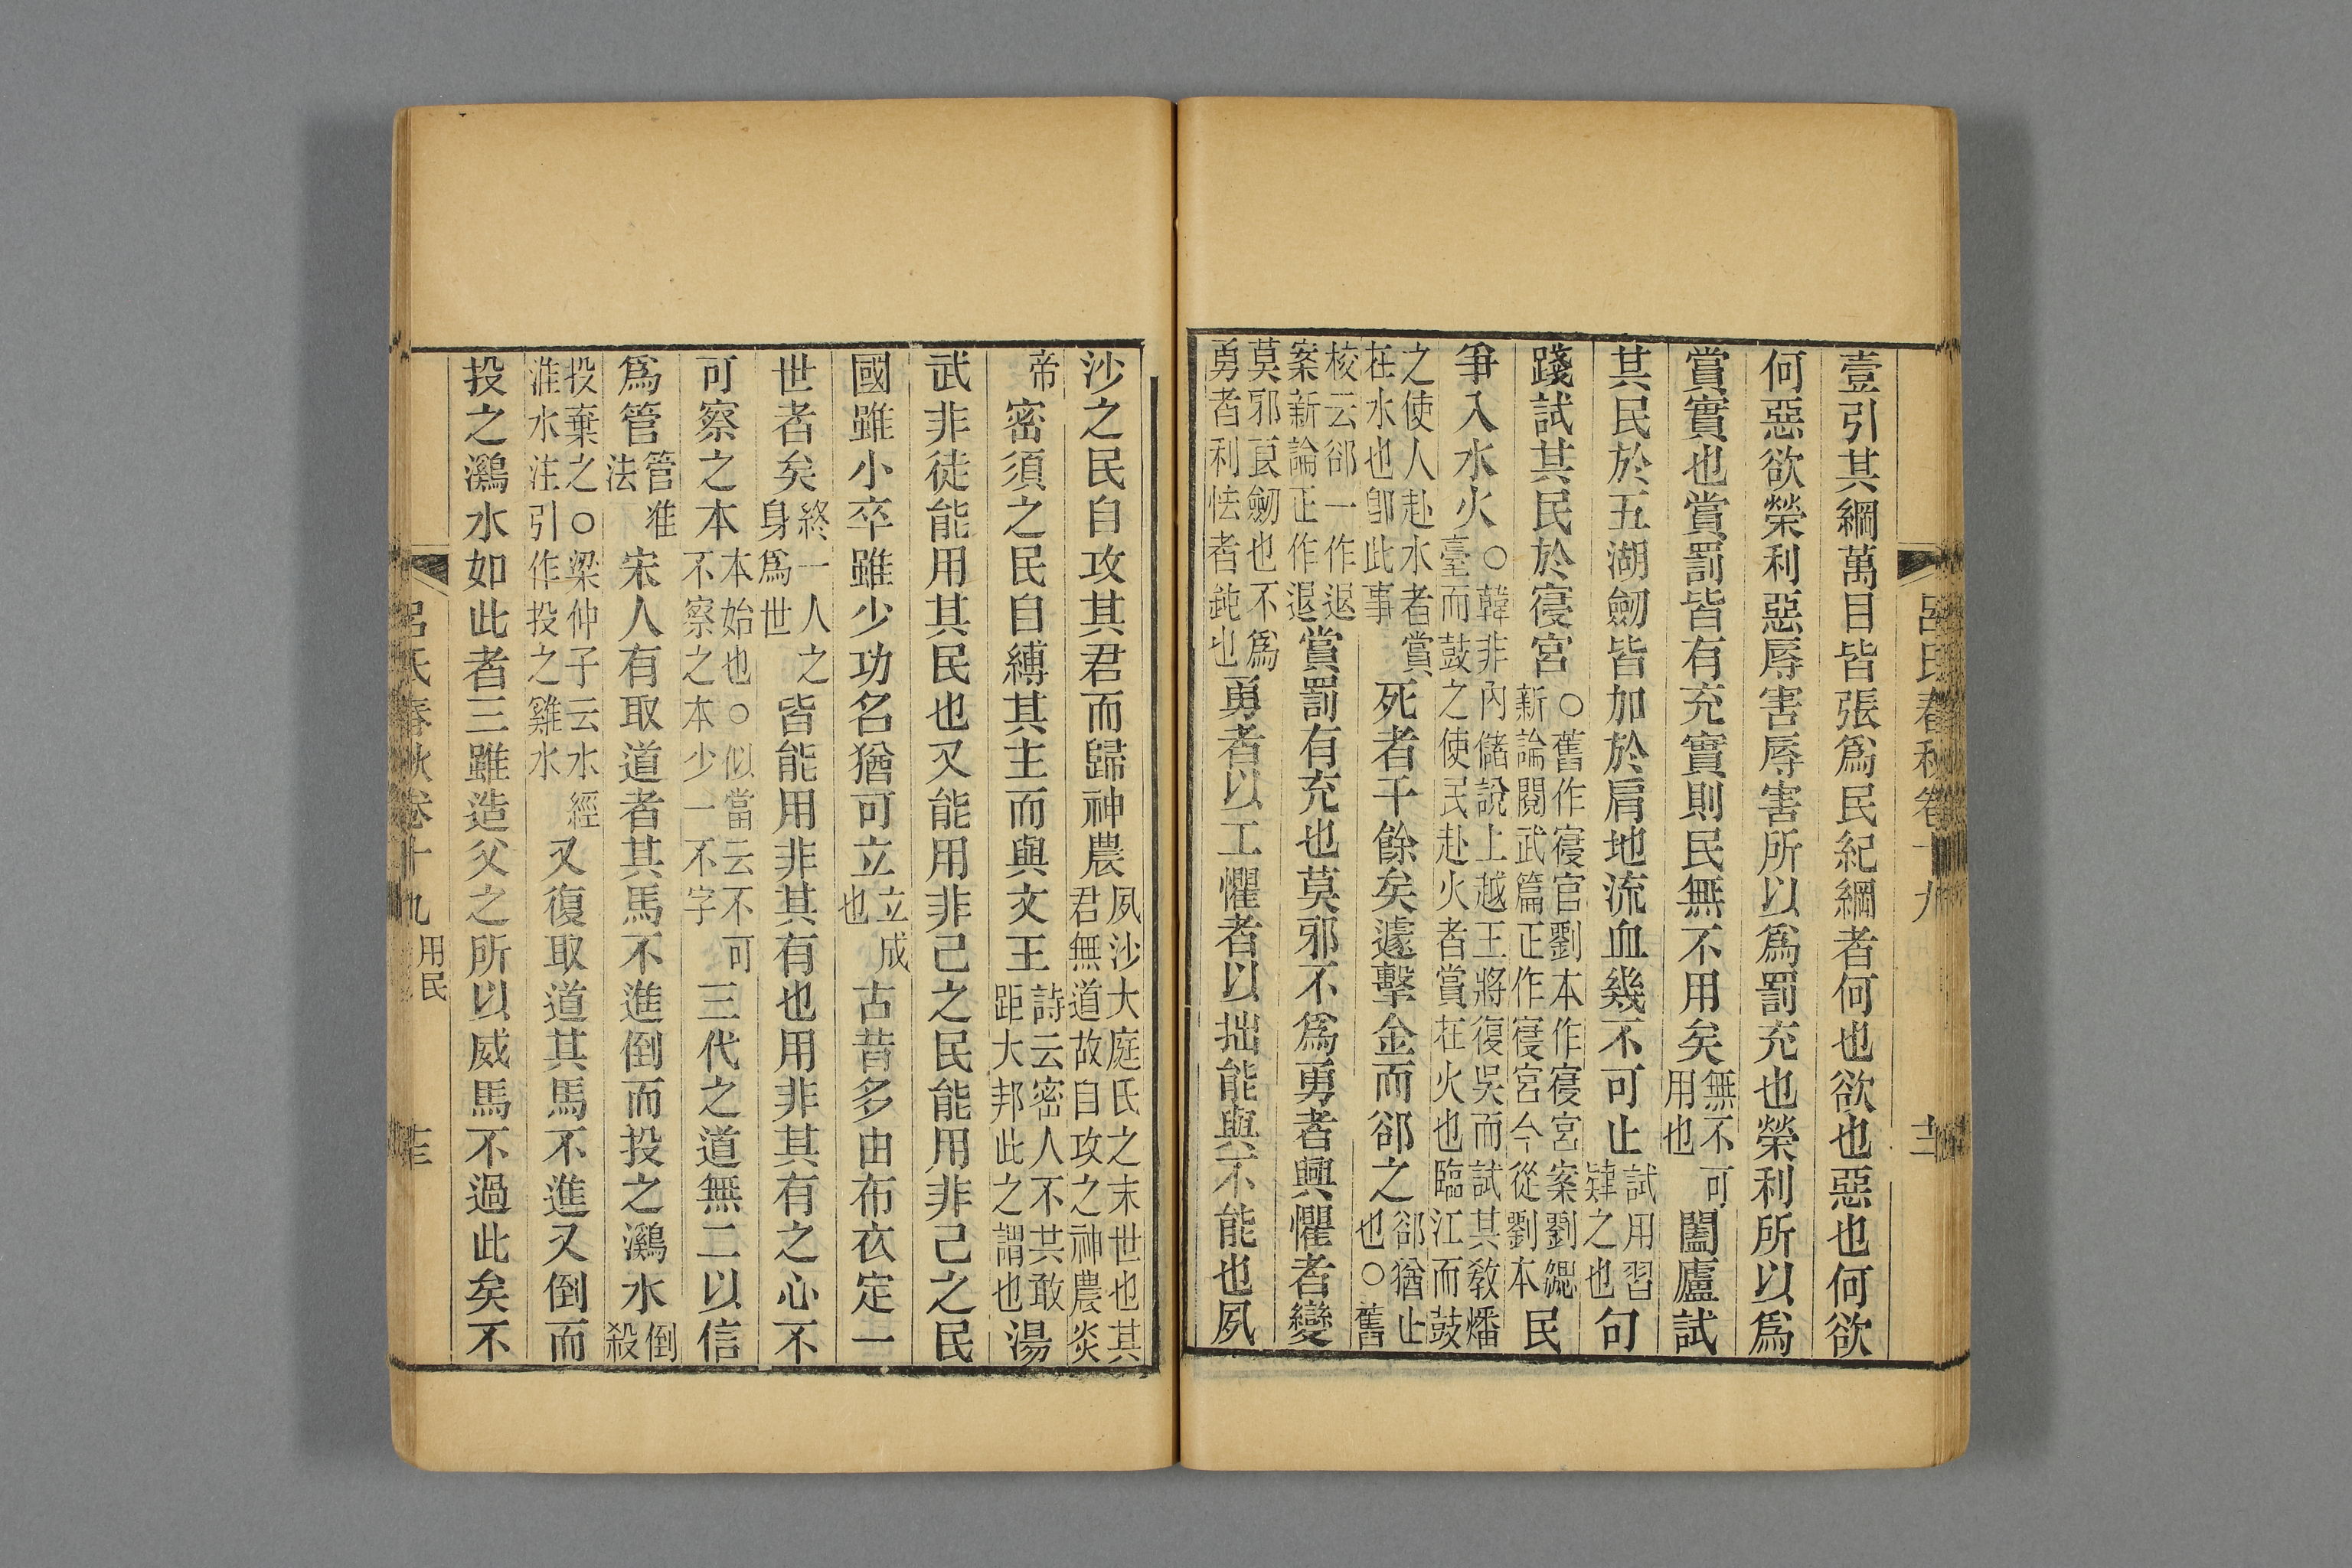 呂氏春秋卷十九
壹引其綱萬目皆張爲民紀綱者何也欲也惡也何欲
何惡欲榮利惡辱害辱害所以爲罰充也榮利所以爲
賞實也賞罰皆有充實則民無不用矣無不可用也闔廬試
其民於五湖劒皆加於肩地流血幾不可止試用習肄之也句
踐試其民於寑宮○舊作寑官劉本作寑宮案劉勰新論閱武篇正作寑宮今從劉本民
爭入水火○韓非內儲說上越王將復吳而試其敎燔臺而鼓之使民赴火者賞在火也臨江而鼓
之使人赴水者賞在水也卽此事死者千餘矣遽擊金而郤之郤猶止也○舊
校云郤一作退案新論正作退賞罰有充也莫邪不爲勇者興懼者變
莫邪良劒也不爲勇者利怯者鈍也勇者以工懼者以拙能與不能也夙
沙之民自攻其君而歸神農夙沙大庭氏之末世也其君無道故自攻之神農炎
帝密須之民自縛其主而與文王詩云密人不共敢距大邦此之謂也湯
武非徒能用其民也又能用非己之民能用非己之民
國雖小卒雖少功名猶可立立成也古昔多由布衣定一
世者矣終一人之身爲世皆能用非其有也用非其有之心不
可察之本本始也○似當云不可不察之本少一不字三代之道無二以信
爲管管准法宋人有取道者其馬不進倒而投之鸂水倒殺
投棄之○梁仲子云水經淮水注引作投之雞水又復取道其馬不進又倒而
投之鸂水如此者三雖造父之所以威馬不過此矣不
呂氏春秋卷十九 用民